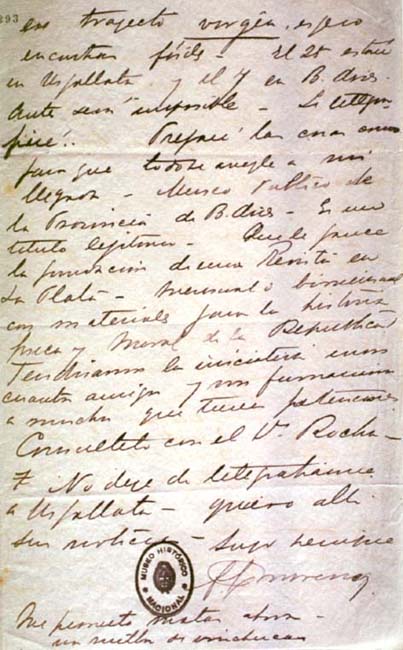 893
en trayecto virgen, espero
encontrar fósiles - El 25 estaré
en Uspallata y el 7 en B. Aires.
Antes será imposible - Le telegra
fiaré. Prepare las cosas como
para que todo se arregle a mi
llegada - Museo Publico de
la Provincia de B. Aires - Es un
titulo legitimo - Que le parece
la fundacion de una Revista en
La Plata - mensual o bimensual
con materiales para la historia
fisica y moral de la Republica
Tendriamos la iniciativa unos
cuantos amigos y
a muchos que tienen pretenciones
Consultelo con el Dr. Rocha -
No deje de telegrafiarme
a Uspallata - quiero alli
sus noticias - Suyo siempre
F P Moreno
MUSEO HISTÓRICO
NACIONAL
Me permito matar ahora -
de vinchucas